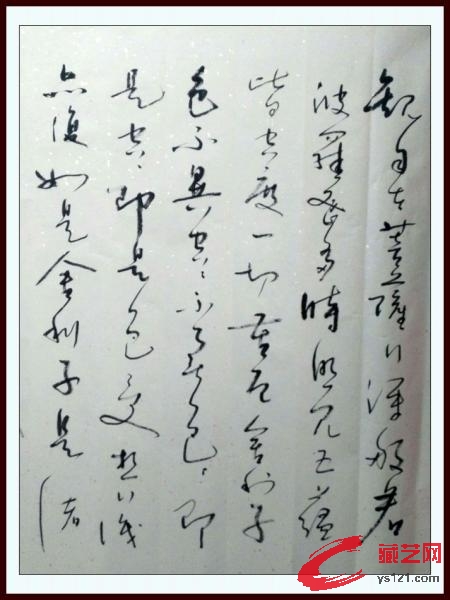 觀自在菩薩行深般若
波羅蜜多時照見五蘊
皆空度一切苦厄舍利子
色不異空〻不異色〻即
是空〻即是色受想行識
亦復如是舍利子是諸
藏艺网
ys121.com